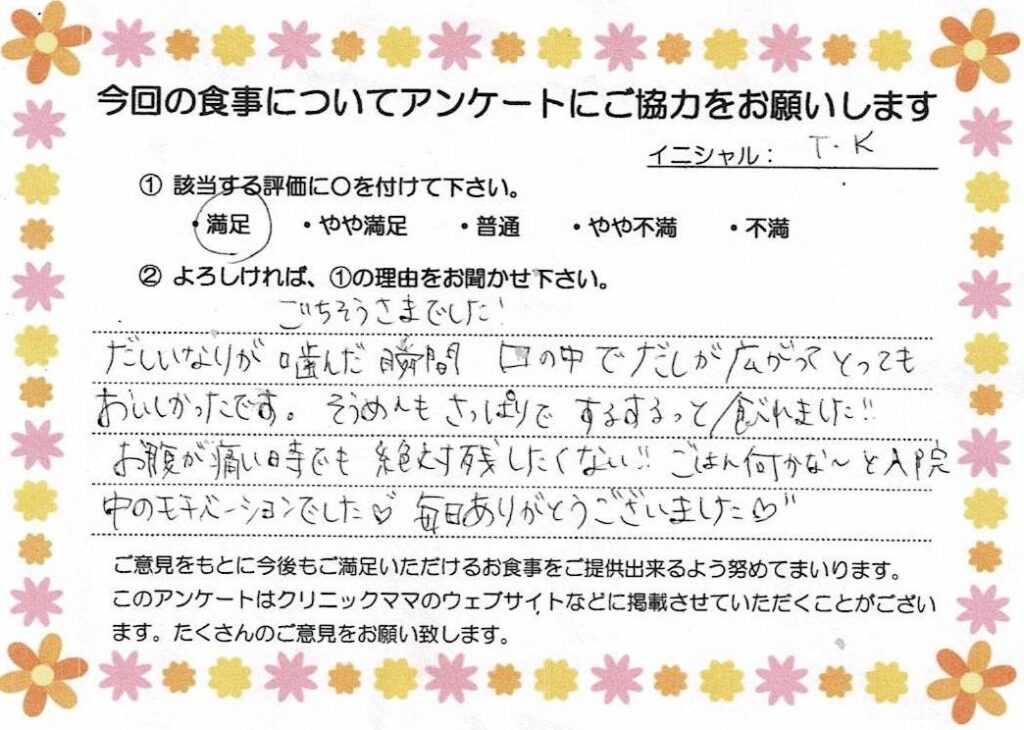 今回の食事についてアンケートにご協力をお願いします
イニシャル： T・K
① 該当する評価に〇を付けて下さい。
・満足 ・やや満足 ・普通 ・やや不満 ・不満
② よろしければ、①の理由をお聞かせ下さい。
ごちそうさまでした!
だしいなりが噛んだ瞬間 口の中でだしが広がってとっても
おいしかったです。 そうめんもさっぱりでするするっと食べれました!!
お腹が痛い時でも絶対残したくない!! ごはん何かな〜と入院
中のモチベーションでした♡ 毎日ありがとうございました♡
ご意見をもとに今後もご満足いただけるお食事をご提供出来るよう努めてまいります。
このアンケートはクリニックママのウェブサイトなどに掲載させていただくことがござい
ます。たくさんのご意見をお願い致します。